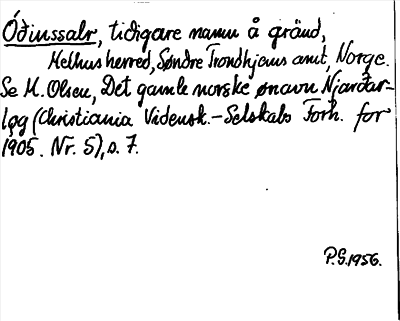 Óðinssalr, tidigare namn å gränd,
Melhus herred, Søndre Trondhjems amt, Norge.
Se M. Olsen, Det gamle norske ønavn Njarðar-
løg (Christiania Vidensk.-Selskabs Forh. for
1905. Nr. 5), s. 7.
P.G. 1956.